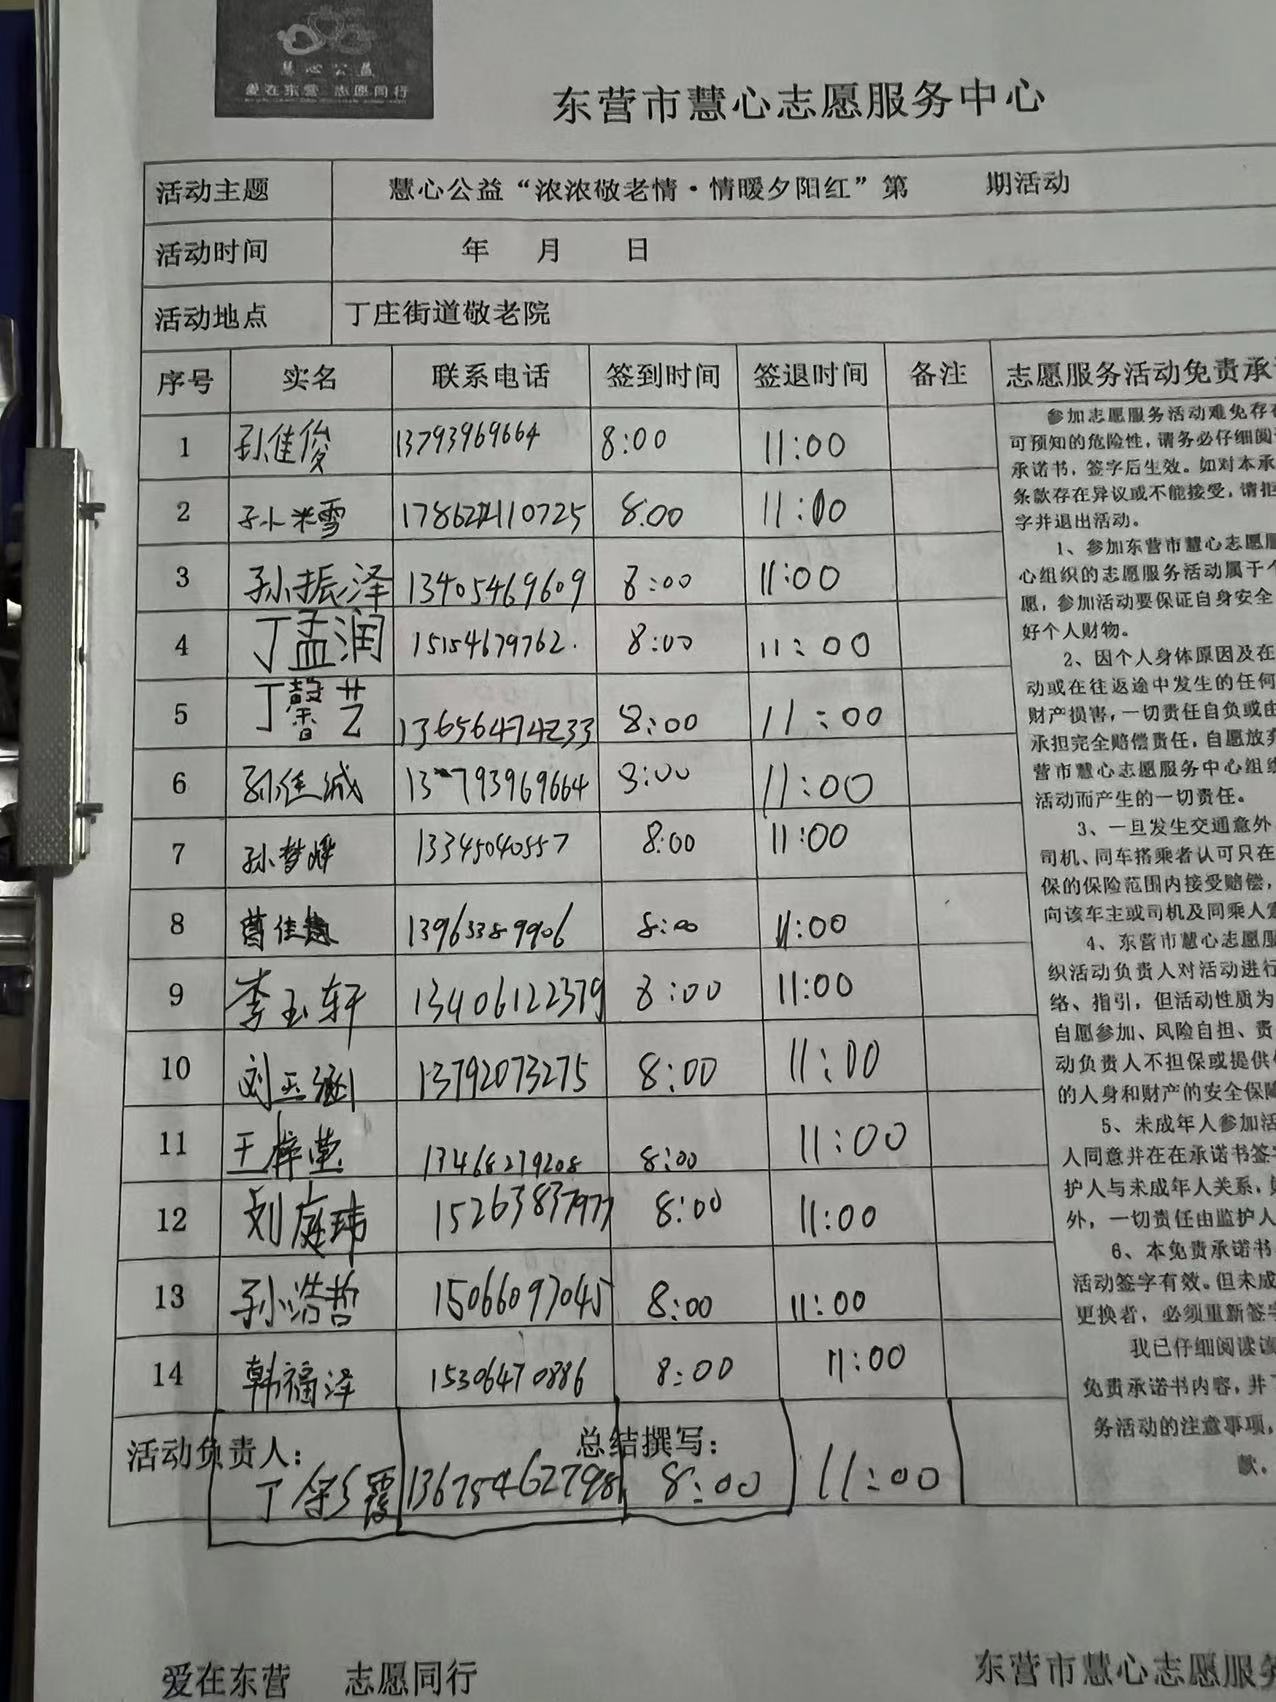 慧心公益
爱在东营 志愿同行
东营市慧心志愿服务中心
活动主题 慧心公益“浓浓敬老情·情暖夕阳红”第 期活动
活动时间 年 月 日
活动地点 丁庄街道敬老院
序号 实名 联系电话 签到时间 签退时间 备注
1 孙佳俊 13793969664 8:00 11:00
2 孙米雪 8:00 11:00
3 孙振泽 13405469609 8:00 11:00
4 丁孟润 15154679762. 8:00 11:00
5 丁馨艺 13656474233 8:00 11:00
6 孙佳诚 13793969664 8:00 11:00
7 孙梦婷 13345040557 8:00 11:00
8 曹佳 13963389906 8:00 11:00
9 李玉轩 13406122379 8:00 11:00
10 刘玉涵 13792073275 8:00 11:00
11 王梓莹 13468279208 8:00 11:00
12 刘庭玮 15263837977 8:00 11:00
13 孙浩哲 15066097045 8:00 11:00
14 韩福泽 15306470886 8:00 11:00
活动负责人： 总结撰写：
丁彩霞 8:00 11:00
志愿服务活动免责承
参加志愿服务活动难免存在
可预知的危险性，请务必仔细阅
承诺书，签字后生效。如对本承
条款存在异议或不能接受，请拒
字并退出活动。
1、参加东营市慧心志愿服
心组织的志愿服务活动属于个
愿，参加活动要保证自身安全
好个人财物。
2、因个人身体原因及在
动或在往返途中发生的任何
财产损害，一切责任自负或由
承担完全赔偿责任，自愿放弃
营市慧心志愿服务中心组织
活动而产生的一切责任。
3、一旦发生交通意外
司机、同车搭乘者认可只在
保的保险范围内接受赔偿，
向该车主或司机及同乘人
4、东营市慧心志愿服
织活动负责人对活动进行
络、指引，但活动性质为
自愿参加、风险自担、责
动负责人不担保或提供
的人身和财产的安全保障
5、未成年人参加活
人同意并在在承诺书签字
护人与未成年人关系，
外，一切责任由监护人
6、本免责承诺书
活动签字有效。但未成
更换者，必须重新签字
我已仔细阅读该
免责承诺书内容，并
务活动的注意事项，
款。
爱在东营 志愿同行
东营市慧心志愿服务